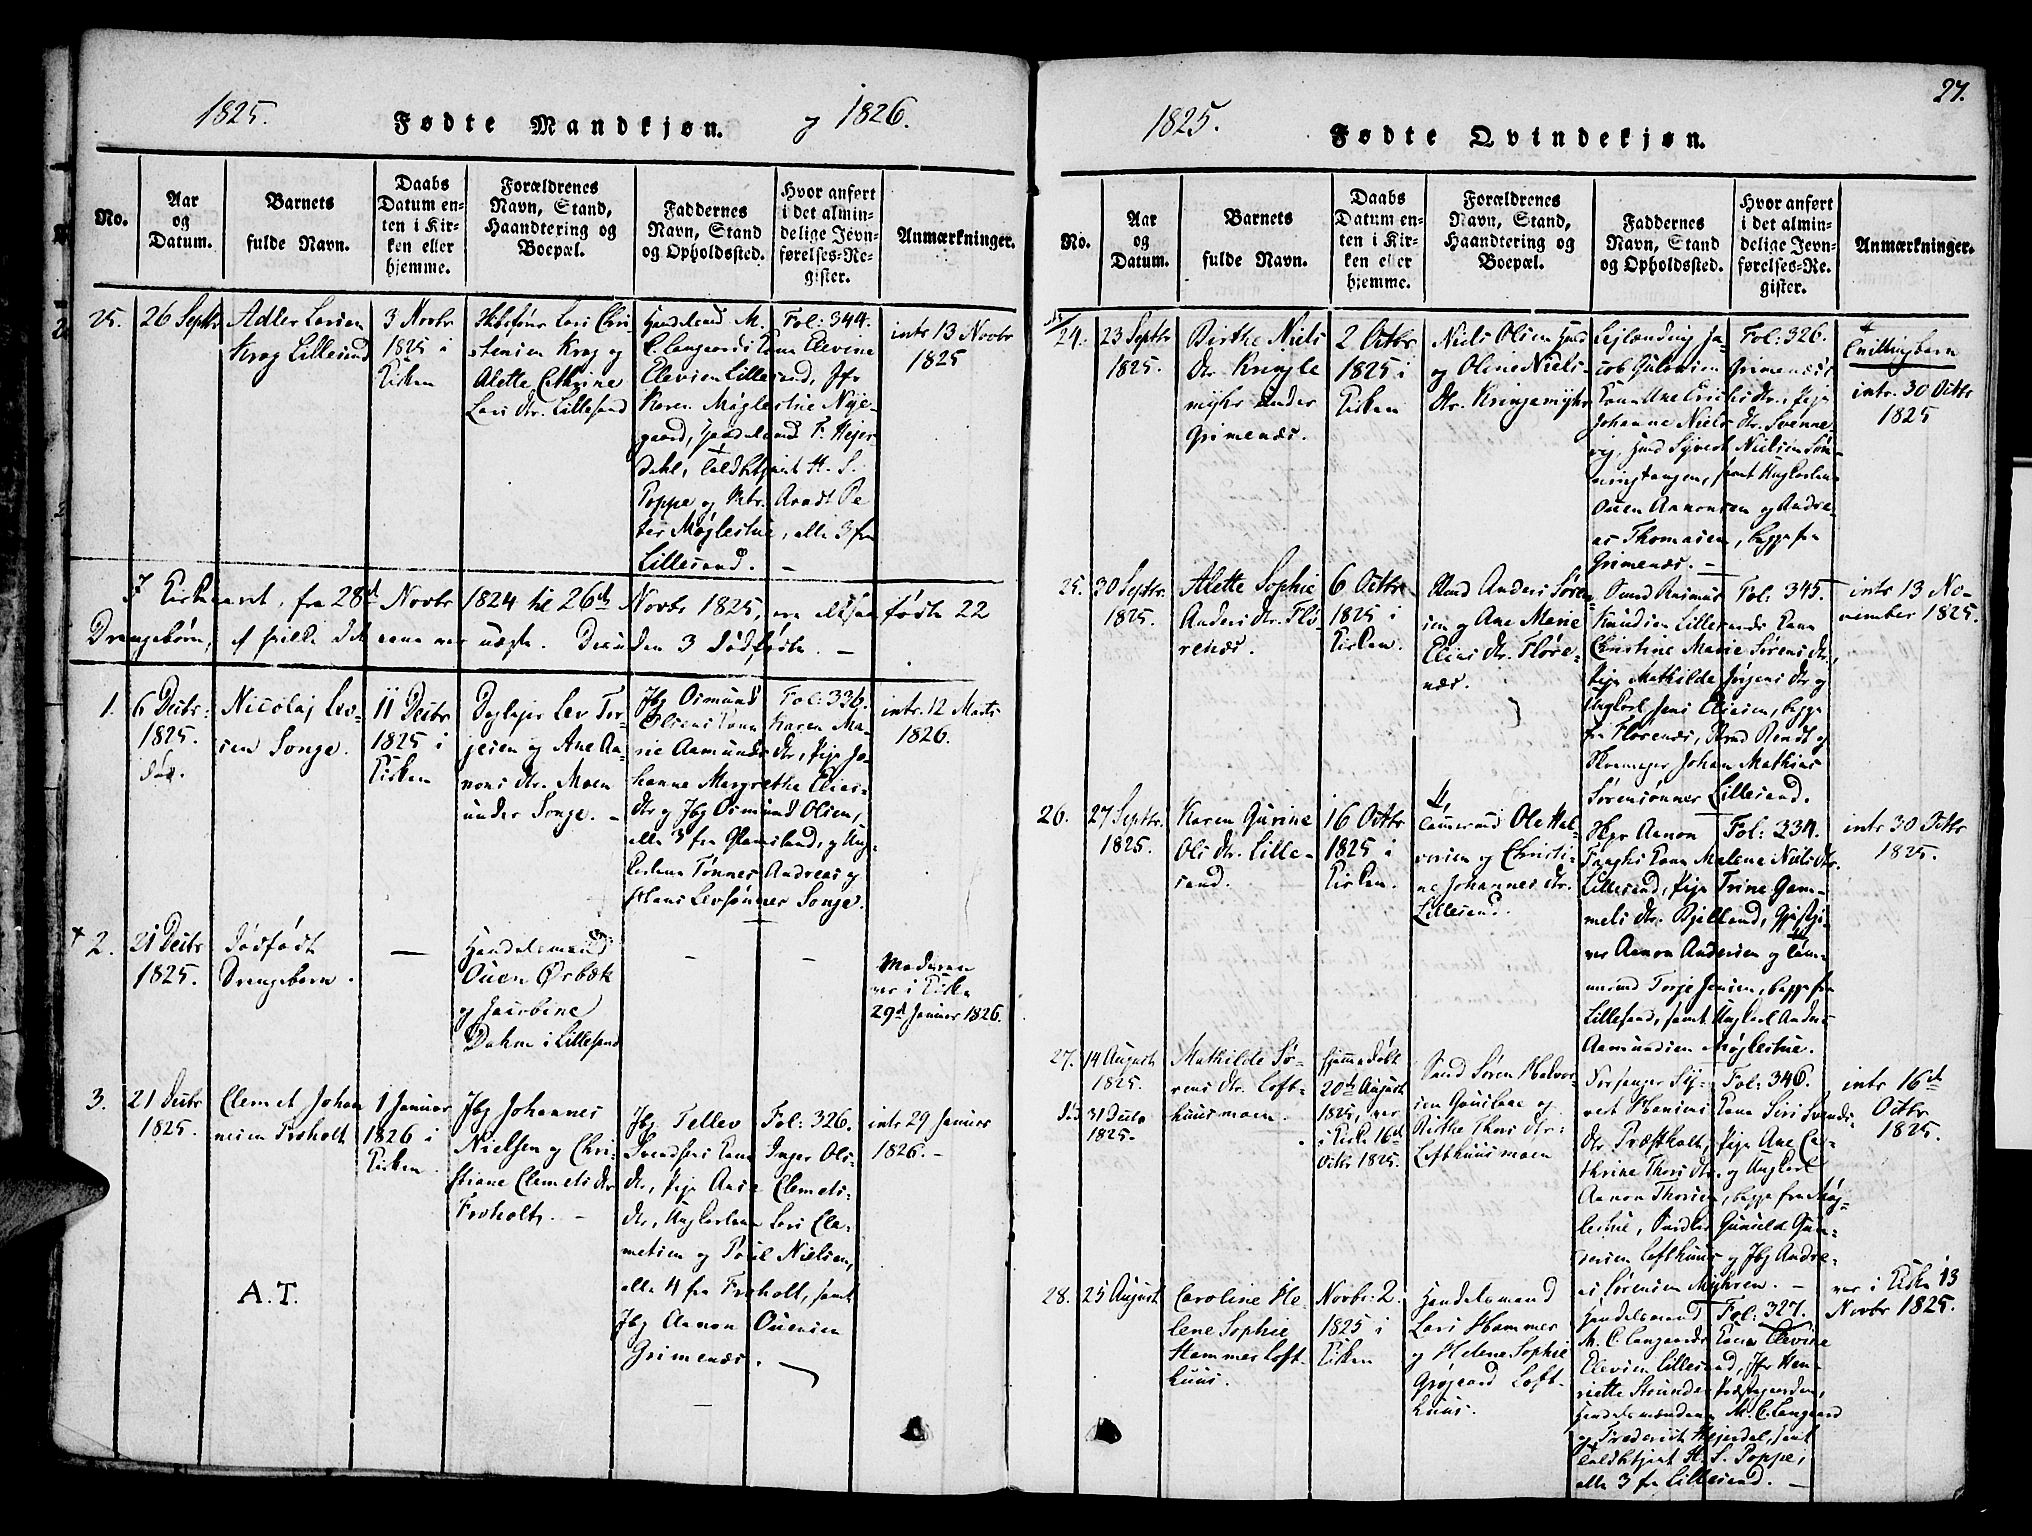 1825. Fødte Mandkjøn. og 1826.
No.
Aar
og
Datum.
Barnets
fulde Navn.
Daabs
Datum en-
ten i Kir-
ken eller
hjemme.
Forældrenes
Navn, Stand,
Haandtering og
Boepæl.
Faddernes
Navn, Stand
og Opholdssted.
Hvor anført
i det almin-
delige Jevn-
førelses-Re-
gister.
Anmærkninger.
25.
26 Septbr
Adler Larsen
Krag Lillesand
3 Novbr
1825 i
Kirken
Lars Chri
stensen Krag og
Alette Cathrine
Lars dtr. Lillesand
Handelsmd M.
C. Langaards Kone Elevine
Elevsen Lillesand, Jfr
Karen Møglestue Nye-
gaard, Handelsmd F. Hejer
dahl, Toldbetjent H. S.
Poppe og Arndt Pe
ter Møglestue, alle 3 fra
Lillesand.
Fol: 344.
intr 13 Novbr
1825
I Kirkeaaret, fra 28d Novbr 1824 til 26de Novbr 1825, ere altsaa fødte 22
Drengebørn, af hvilke det ene var uægte. Desuden 3 dødfødte.
1.
6 Decbr
1825.
død.
Nicolaj Lev-
sen Songe.
11 Decbr
1825 i
Kirken
Daglejer Lev Ter-
jesen og Ane Aa-
nons dtr. Moen
under Songe.
Jbg Osmund
Olsens Kone Karen Ma-
rie Aamunds dtr, Pige Jo-
hanne Margrethe Elias-
dtr og Jbg Osmund Olsen,
alle 3 fra Glamsland, og Ung-
karlene Tønnes Andreas og
Hans Levsønner Songe.
Fol: 336.
intr. 12 Marts
1826.
2.
21 Decbr
1825.
Dødfødt
Drengebarn.
Handelsmand
Ouen Ørbæk
og Jacobine
Dahm i Lillesand
Moderen
var i Kirke
29d Januar 1826.
3.
21 Decbr
1825.
Clemet Johan
nesen Froholt
1 Januar
1826 i
Kirken.
Jbg Johannes
Nielsen og Chri-
stiane Clemets dtr
Froholt.
Jbg Tellev
Svendsens Kone Inger Ols-
dtr, Pige Anne Clemets-
dtr, Ungkarlene Lars Cle-
metsen og Poul Nielsen,
alle 4 fra Froholt, samt
Jbg Aanon Ouensen
Grimenæs.
Fol: 326.
intr 29 Januar
1826.
A. T.
27.
1825. Fødte Qvindekjøn.
No.
Aar
og
Datum.
Barnets
fulde Navn.
Daabs
Datum en-
ten i Kir-
ken eller
hjemme.
Forældrenes
Navn, Stand,
Haandtering og
Boepæl.
Faddernes
Navn, Stand
og Opholdssted.
Hvor anført
i det almin-
delige Jevn-
førelses-Re-
gister.
Anmærkninger.
24.
23 Septbr
1825.
Birthe Niels
dtr. Kringle
myhr under
Grimenæs.
2 Octbr
1825 i
Kirken
Niels Olsen
og Oline Niels-
dtr. Kringlemyhr
Ja-
cob Gulovsen Grimenæs's
Kone Ane Erichs dtr, Pige
Johanne Niels dtr. Svenne-
vig, Syvert Nielsen Søn-
ningtangen, samt Ungkarlene
Ouen Aanonsen og Andre-
as Thomasen, begge fra
Grimenæs.
Fol: 326.
Tvillingbarn
intr. 30 Octbr
1825
25.
30 Septbr
1825.
Alette Sophie
Anders dtr. Flø-
renæs.
6 Octbr
1825 i
Kirken.
Anders Søren-
sen og Ane Marie
Elias dtr. Fløre-
næs.
Rasmus
Knudsen Lillesands Kone
Christine Marie Sørens dtr,
Pige Mathilde Jørgens dtr og
Ungkarl Jens Eliesen, begge
fra Florenæs, Berndt og
Skomager Johan Mathias
Sørensønner Lillesand.
Fol: 345.
intr 13 No-
vember 1825.
26.
27 Septbr.
1825.
Karen Gurine
Ols dtr. Lille-
sand.
16 Octbr
1825 i
Kirken.
Tømermd Ole Hal-
vorsen og Christi-
ne Johannes dtr.
Lillesand.
Skpr Aanon
Kone Malene Niels dtr.
Lillesand, Pige Trine Gam-
mels dtr. Bjelland, Gjæstgi-
ver Aanon Andersen og Tøm-
mermd Terje Jensen, begge fra
Lillesand, samt Ungkarl Anders
Aamundsen Møglestue.
Fol: 234.
intr 30 Octbr
1825.
27.
14 August
1825.
1825.
Mathilde Sø-
rens dtr. Loft-
huusmoen.
hjemmedøbt
20de August
1825, var
i Kirke 16d
Octbr 1825.
Søren Halvor-
sen og
Birthe Thors dtr
Lofthuusmoen
Sy-
vert Hansens Kone Siri Svends
dtr Præstholt, Pige Ane Ca-
thrine Thors dtr. og Ungkarl
Aanon Thorsen, begge fra Møg-
lestue, Gunild Gun-
dersen Lofthuus og Jbg Andre-
as Sørensen Myhren.
Fol: 346.
intr 16de
Octbr
1825.
28.
25 August
Caroline He-
lene Sophie
Hammer Loft-
huus.
Novbr: 2.
1825 i
Kirken
Handelsmand
Lars Hammer
og Helene Sophie
Grøgaard Loft-
huus.
Handelsmand
M. C. Langaards Kone Elevine
Elevsen Lillesand, Jfr Hen-
riette Præstegaarden,
Handelsmændene M. C. Langaard
og Frederich Hejerdal, samt
Toldbetjent H. S. Poppe,
alle 3 fra Lillesand.
Fol: 327.
var i Kirke 13
Novbr 1825.